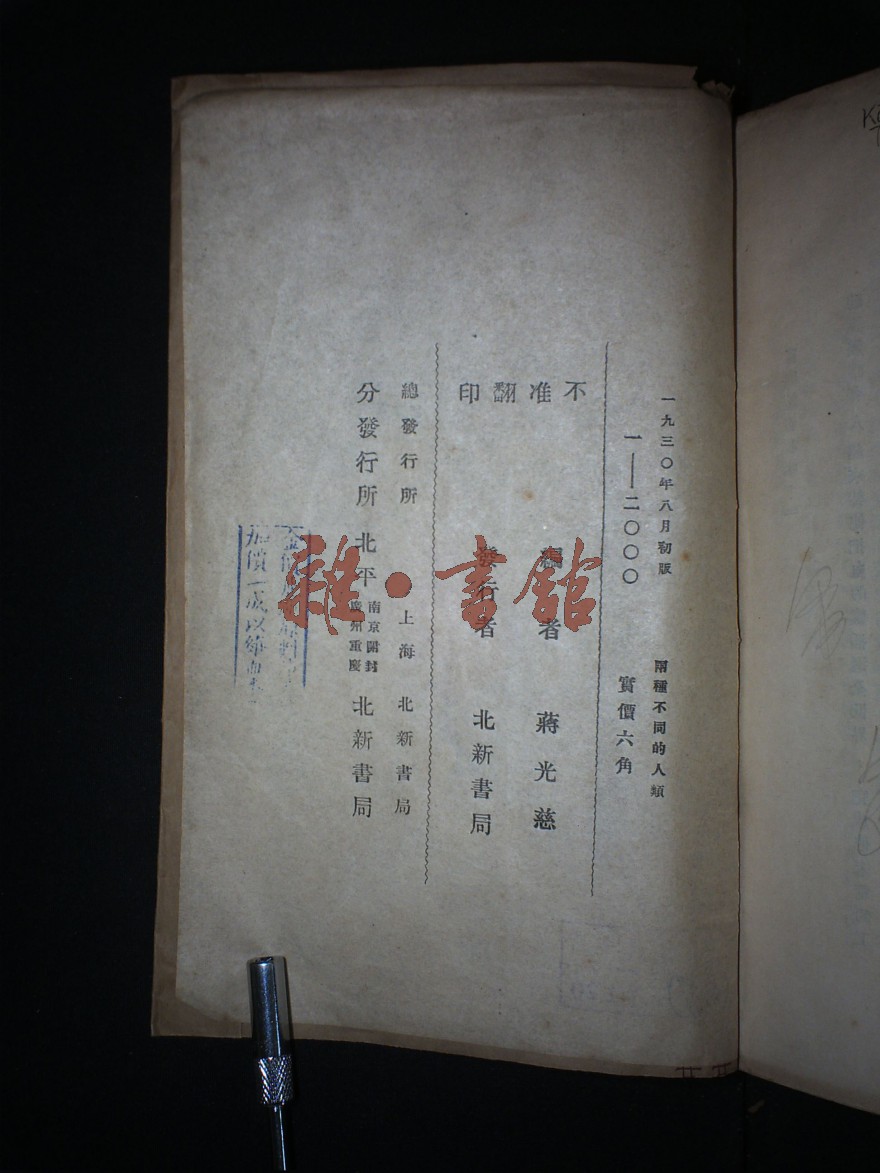 一九三〇年八月初版
兩種不同的人類
一——二〇〇〇
實價六角
不准翻印
編者 蔣光慈
發行者 北新書局
總發行所 上海 北新書局
分發行所 北平 南京開封廣州重慶 北新書局
加價一成以
雜·書館